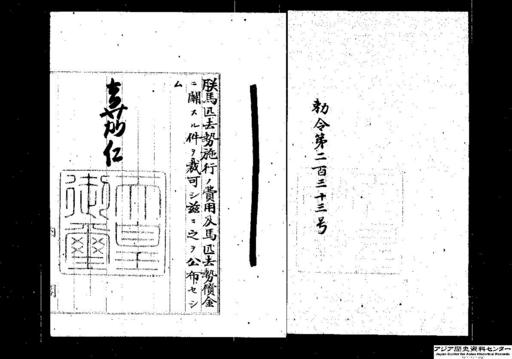 勅令第二百三十三号
朕馬匹去勢施行ノ費用及馬匹去勢償金
ニ關スル件ヲ裁可シ茲ニ之ヲ公布セシ
ム
嘉仁
天皇御璽
アジア歴史資料センター
Japan Center for Asian Historical Records